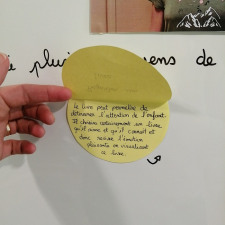 i plusi   ens de
Le livre peut permettre de
détourner l'attention de l'enfant.
Il choisira certainement un livre
qu'il aime et qu'il connaît et
donc revivre l'émotion
plaisante en visualisant
ce livre.